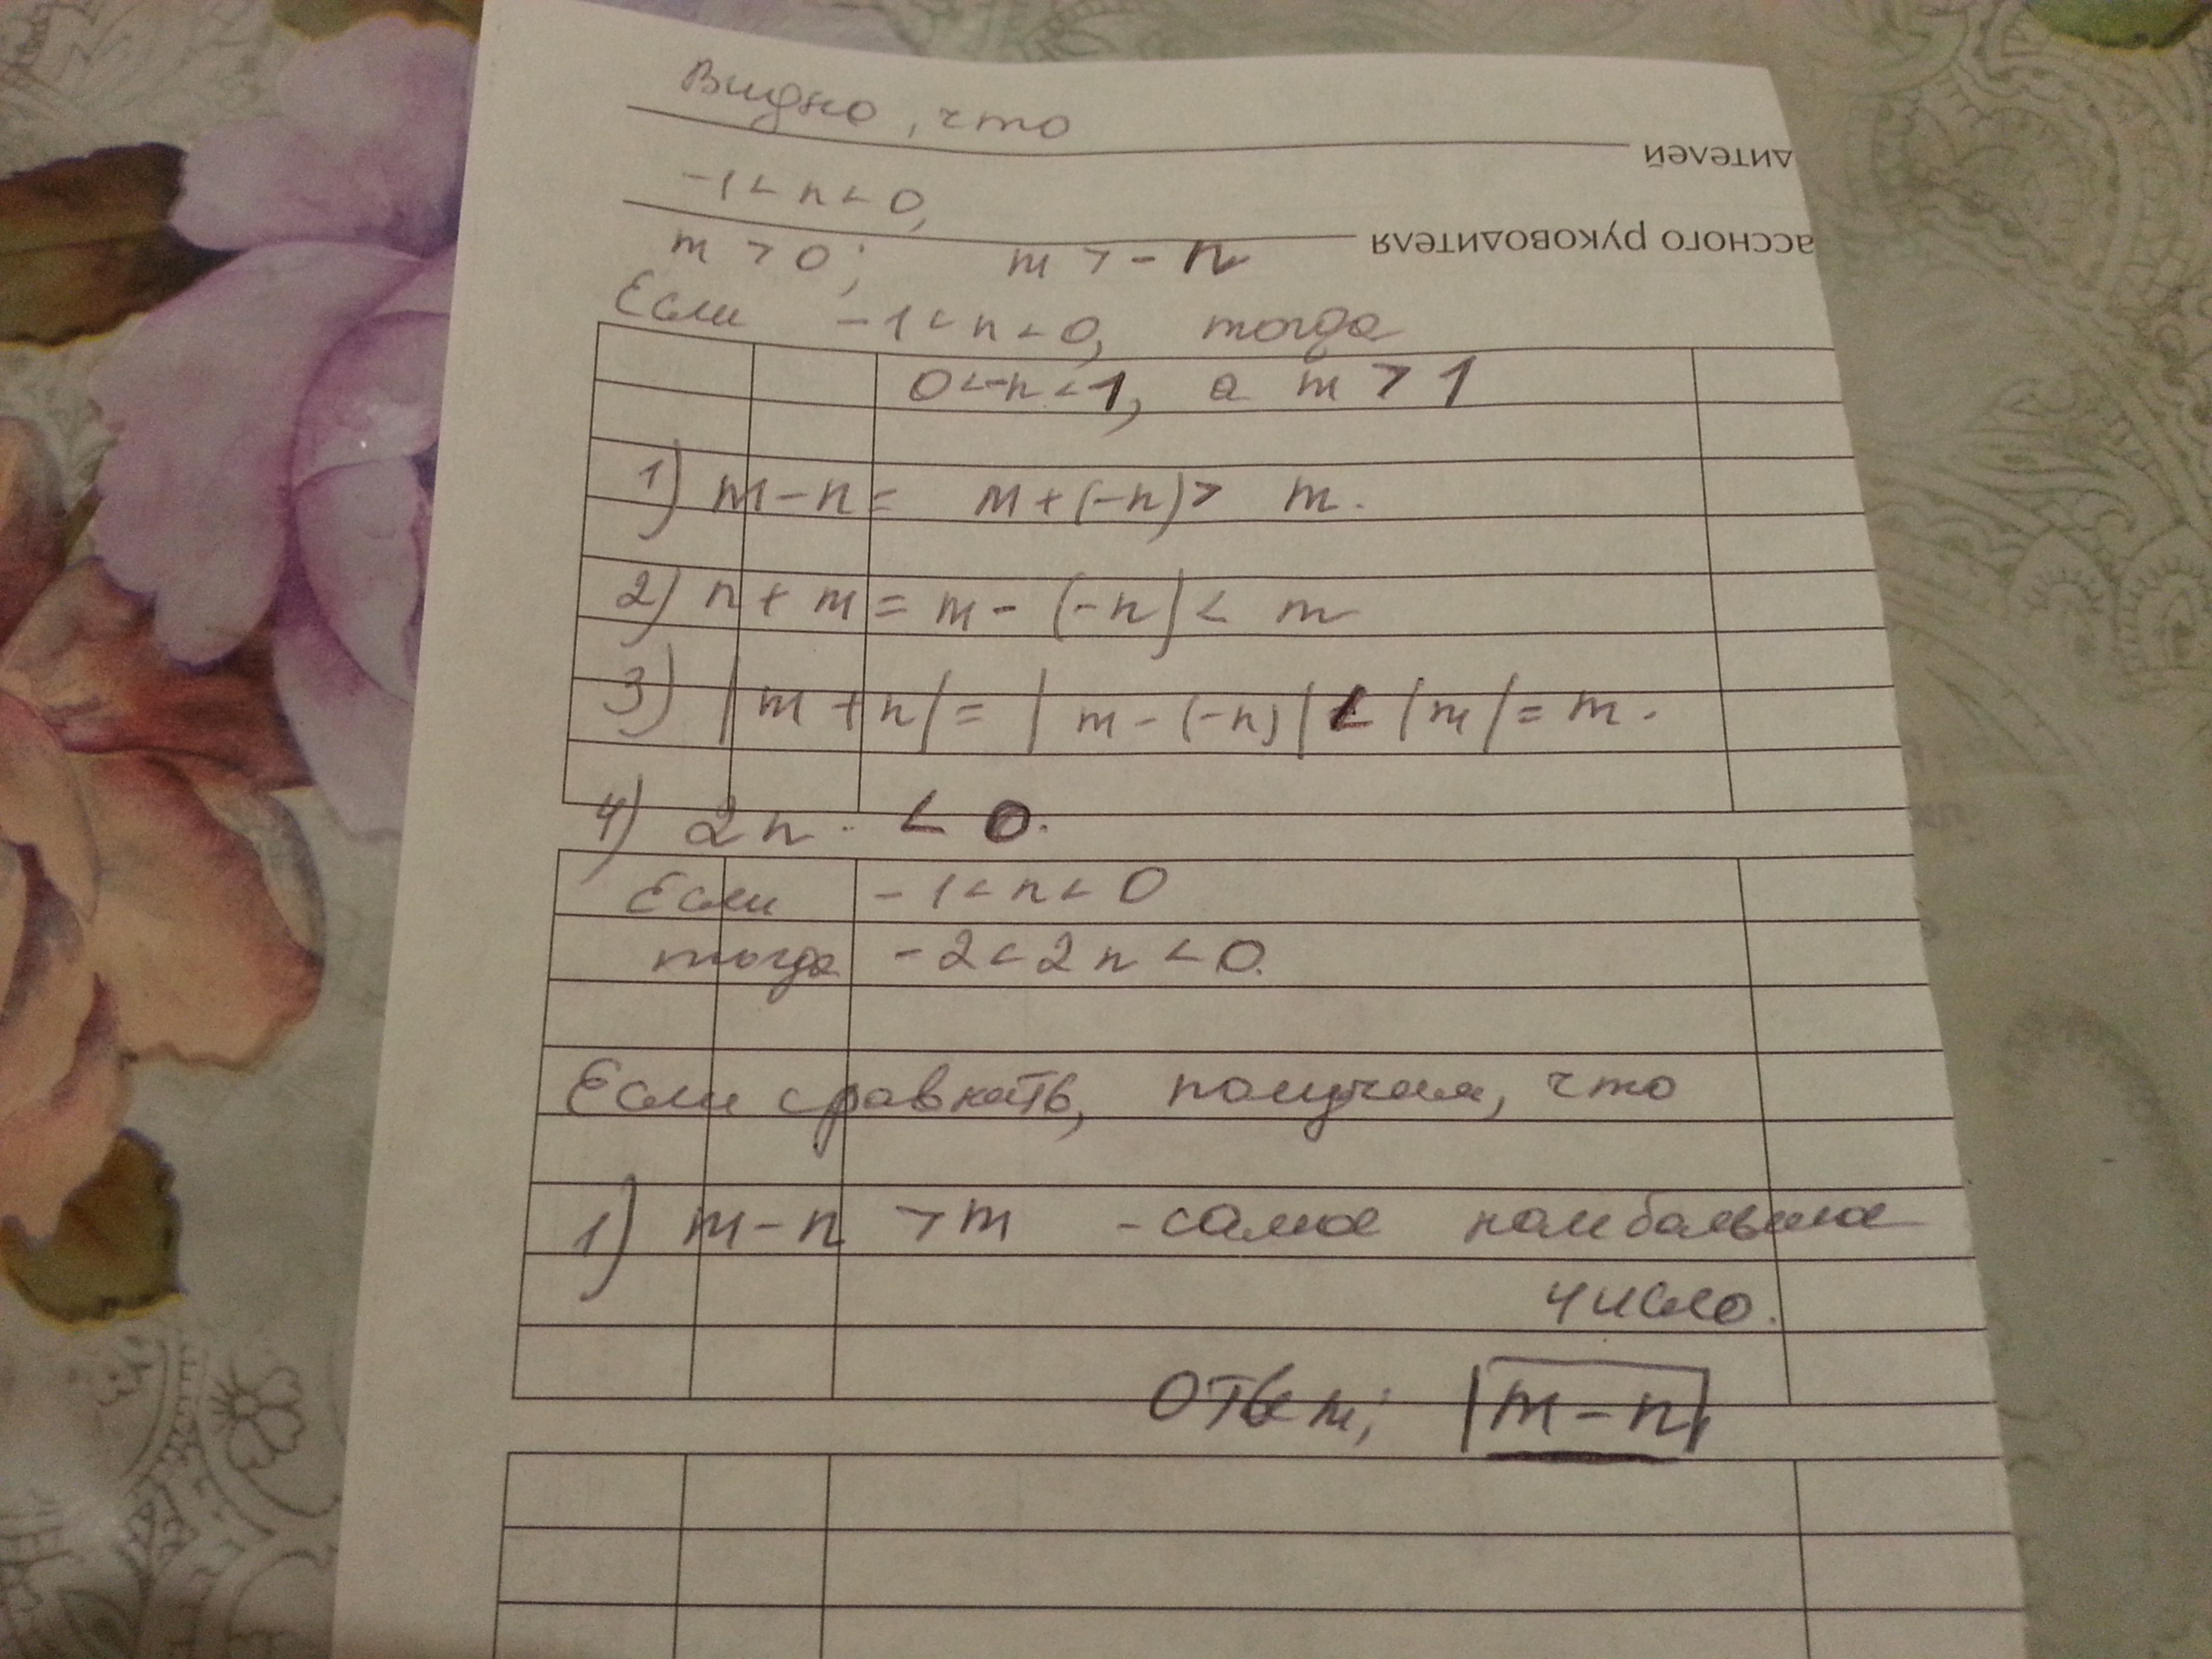 Видно, что
дителей
-1 < n < 0,
ассного руководителя
m > 0; m > -n
Если -1 < n < 0, тогда
0 < -n < 1, а m > 1
1) m - n = m + (-n) > m.
2) n + m = m - (-n) < m
3) |m + n| = |m - (-n)| < |m| = m.
4) 2n < 0.
Если -1 < n < 0
тогда -2 < 2n < 0.
Если сравнить, получим, что
1) m - n > m - самое наибольшее
число.
Ответ; m - n